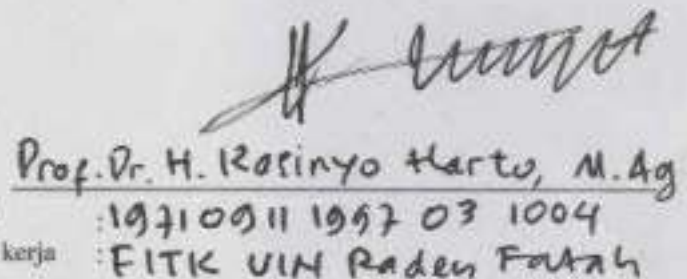 Prof. Dr. H. Kasinyo Harto, M.Ag
: 19710911 1997 03 1004
kerja : FITK UIN Raden Fatah